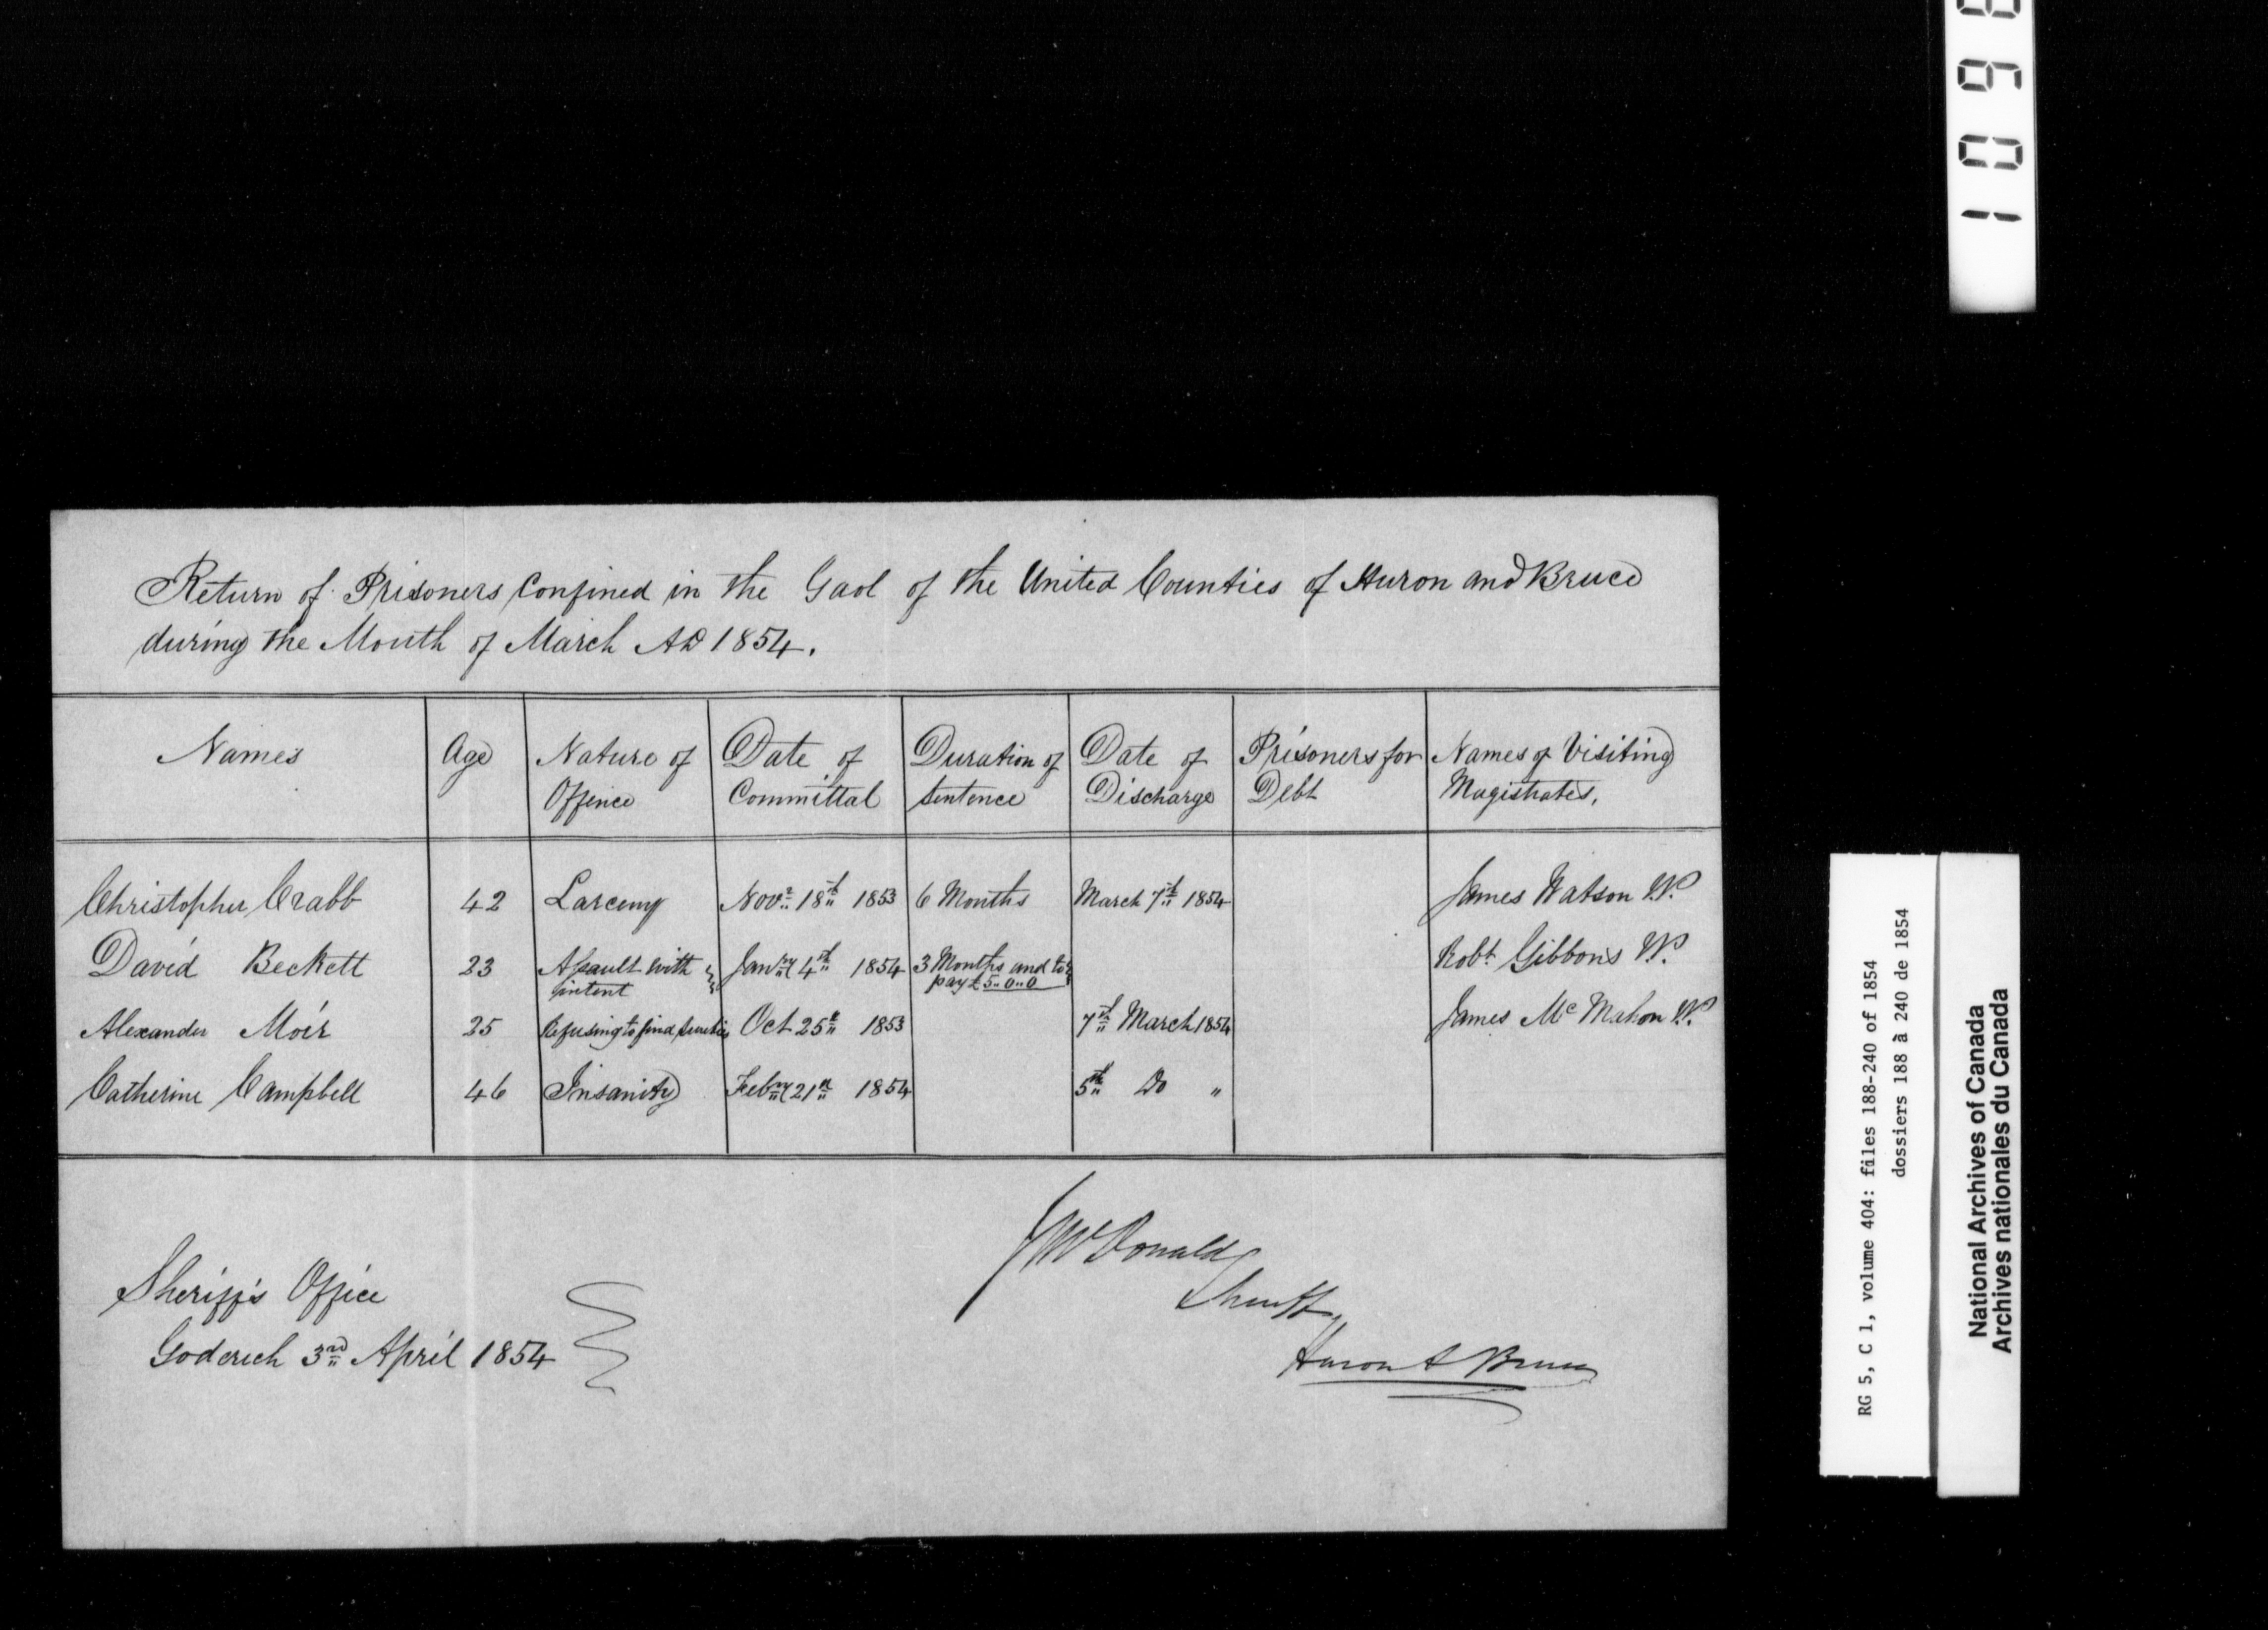 Return of Prisoners Confined in the Gaol of the United Counties of Huron and Bruce
during the Month of March AD 1854.
Names Age Nature of Offence Date of Committal Duration of Sentence Date of Discharge Prisoners for Debt Names of Visiting Magistrates.
Christopher Crabb 42 Larceny Novr 18th 1853 6 Months March 7th 1854 James Watson
David Beckett 23 Assault with intent Jany 4th 1854 3 Months and to pay £5..0..0 Robt Gibbons
Alexander Moir 25 Refusing to find sureties Oct 25th 1853 7th March 1854 James McMahon
Catherine Campbell 46 Insanity Febry 21st 1854 5th Do "
Sheriff's Office
Goderich 3rd April 1854
J McDonald
Sheriff
Huron & Bruce
1098
RG 5, C 1, volume 404: files 188-240 of 1854
dossiers 188 à 240 de 1854
National Archives of Canada
Archives nationales du Canada